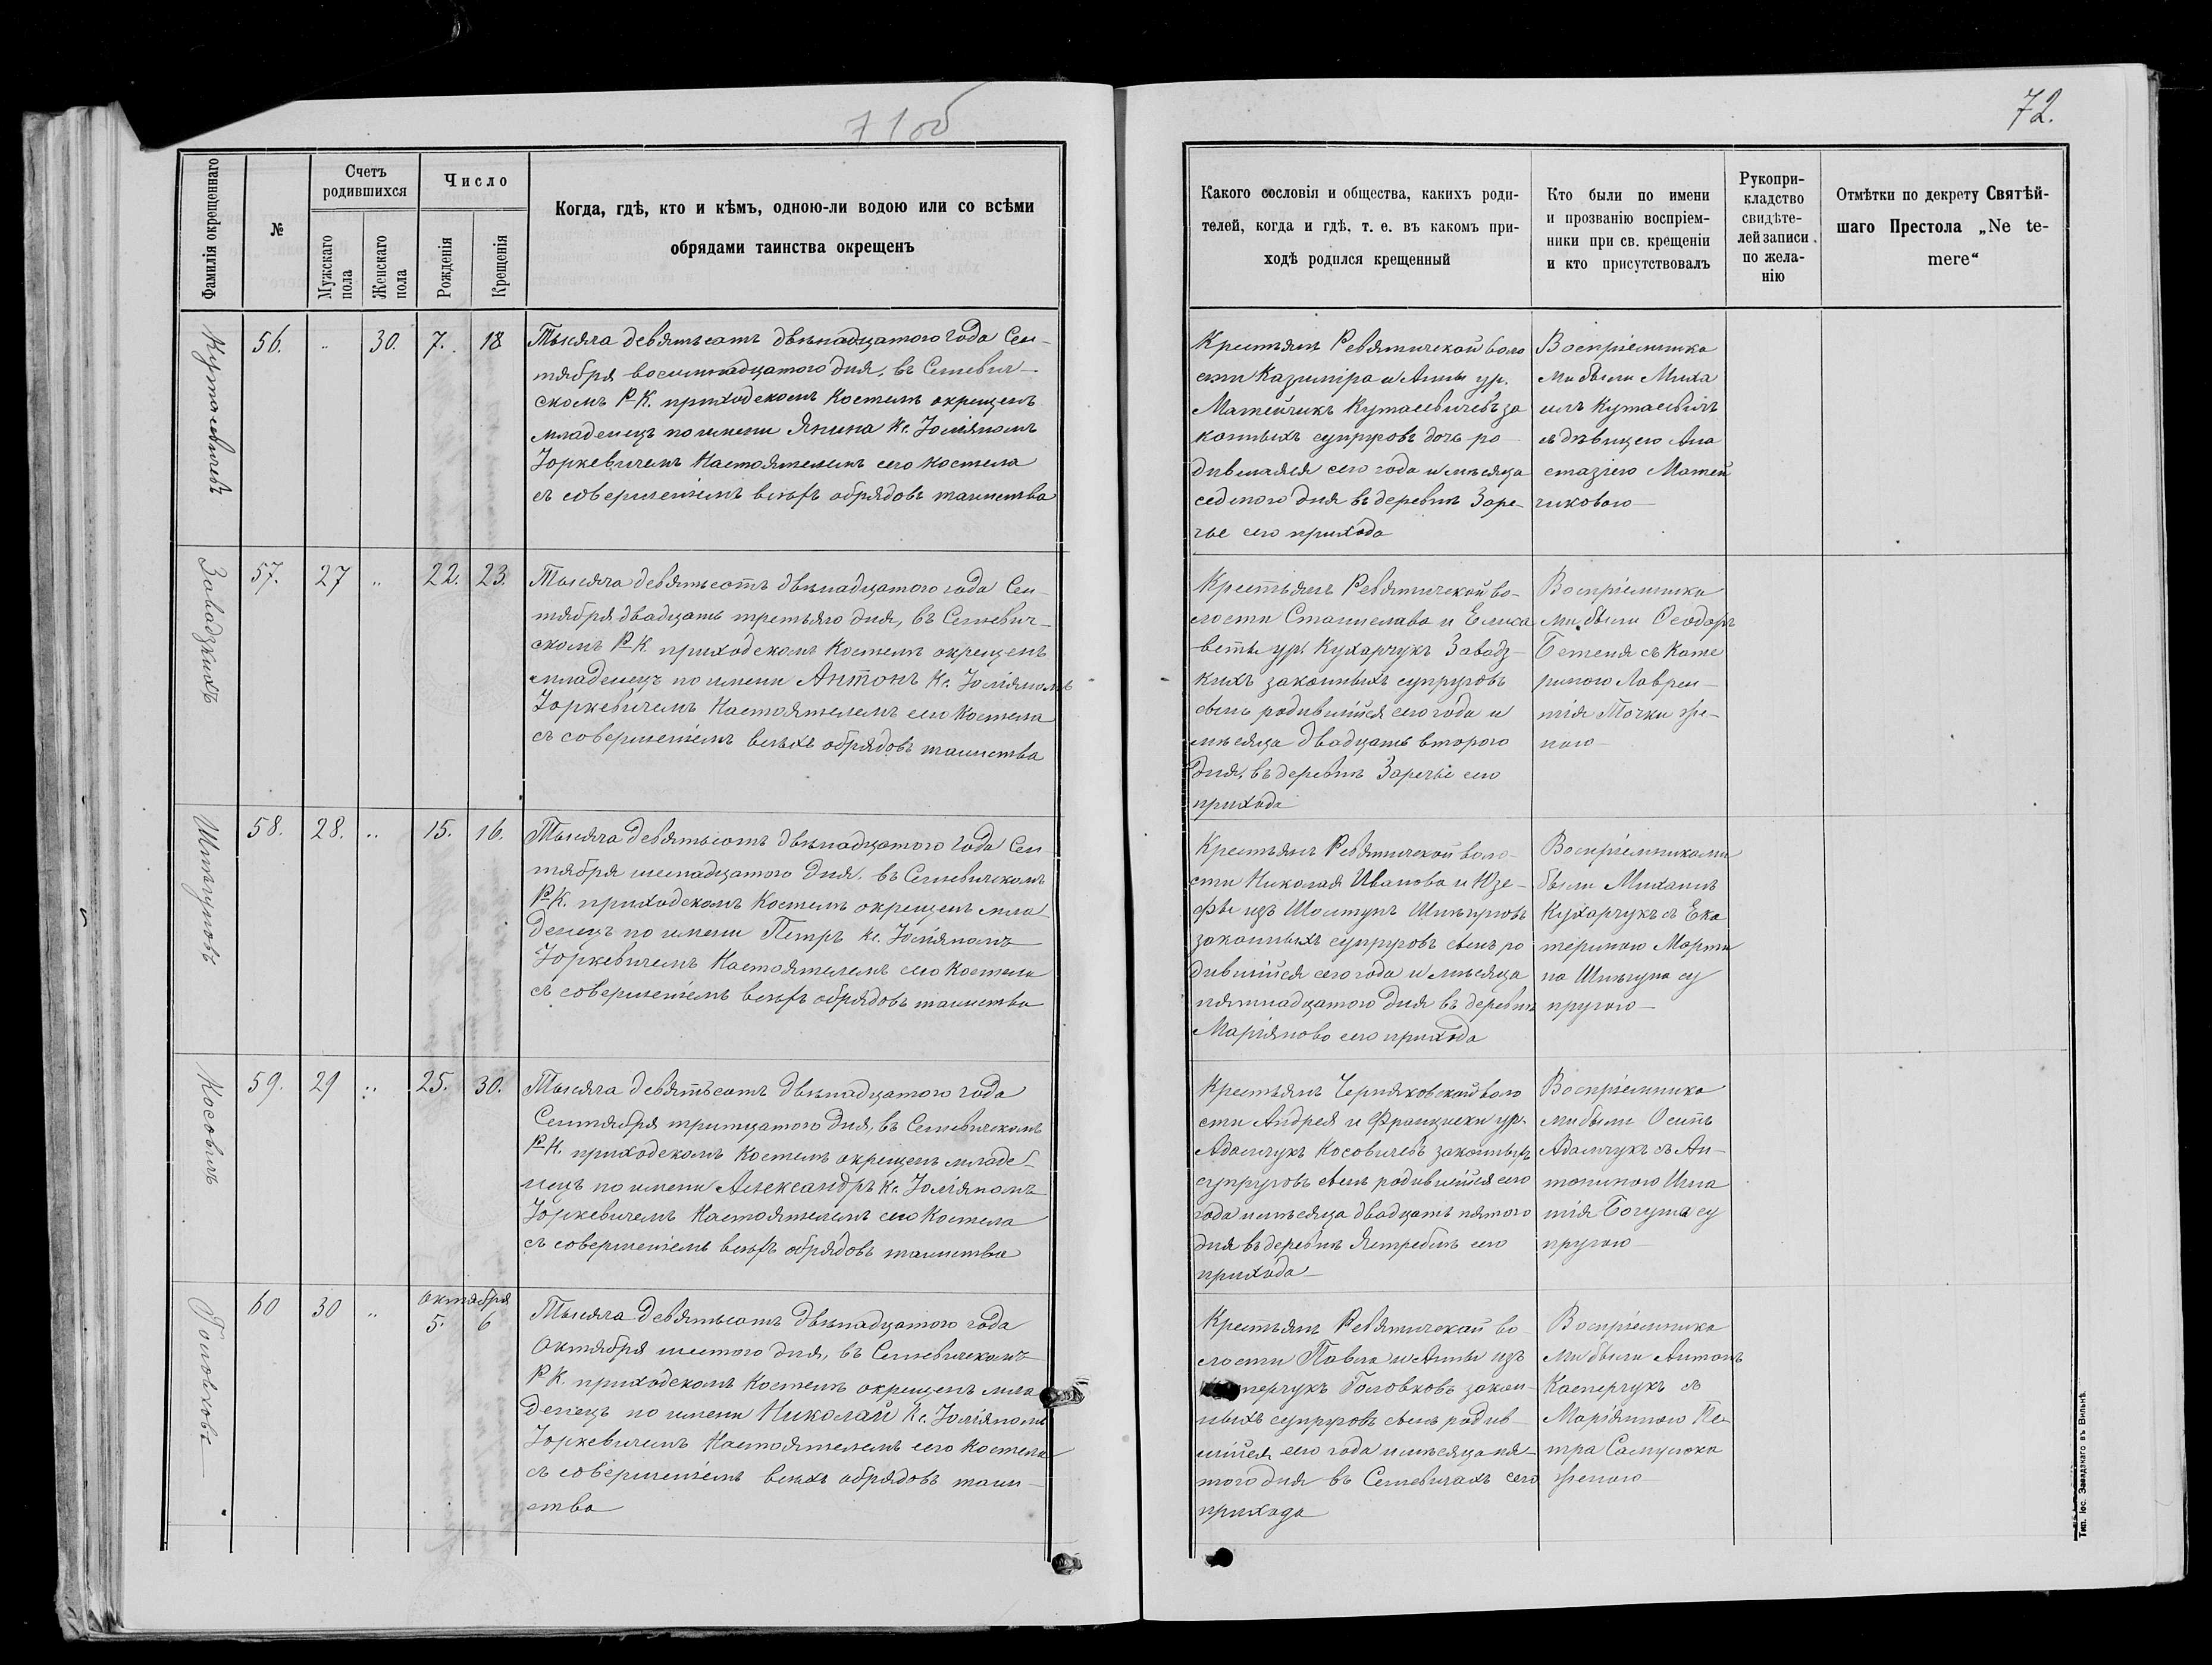 71об
72.
Фамилія окрещеннаго
№
Счетъ
родившихся
Мужскаго
пола
Женскаго
пола
Число
Рожденія
Крещенія
Когда, гдѣ, кто и кѣмъ, одною-ли водою или со всѣми
обрядами таинства окрещенъ
Какого сословія и общества, какихъ роди-
телей, когда и гдѣ, т. е. въ какомъ при-
ходѣ родился крещенный
Кто были по имени
и прозванію воспріем-
ники при св. крещеніи
и кто присутствовалъ
Рукопри-
кладство
свидѣте-
лей записи
по жела-
нію
Отмѣтки по декрету Святѣй-
шаго Престола „Ne te-
mere“
Кутасевичевъ
56. .. 30. 7. 18
Тысяча девятьсотъ двѣнадцатого года Сен-
тября восемнадцатого дня, въ Селевич-
скомъ Р-К. приходскомъ Костелѣ окрещенъ
младенецъ по имени Янина Кс. Юліяномъ
Юркевичемъ Настоятелемъ сего Костела
съ совершеніемъ всѣхъ обрядовъ таинства
Крестьянъ Ревятичской воло
сти Казиміра и Анны ур.
Матейчикъ Кутасевичевъ за
конныхъ супруговъ дочь ро
дившаяся сего года и мѣсяца
седмого дня въ деревнѣ Заре-
чье сего прихода
Воспріемника
ми были Миха
илъ Кутасевичъ
съ дѣвицею Ана
стазіею Матей
чиковою
Завадзкихъ
57. 27 .. 22. 23.
Тысяча девятьсотъ двѣнадцатого года Сен
тября двадцать третьяго дня, въ Селевич-
скомъ Р-К. приходскомъ Костелѣ окрещенъ
младенецъ по имени Антонъ Кс. Юліяномъ
Юркевичемъ Настоятелемъ сего Костела
съ совершеніемъ всѣхъ обрядовъ таинства
Крестьянъ Ревятичской во-
лости Станислава и Елиса
веты ур. Кухарчукъ Завадз-
кихъ законныхъ супруговъ
сынъ родившійся сего года и
мѣсяца двадцать второго
дня, въ деревнѣ Заречье сего
прихода
Воспріемника
ми были Ѳеодоръ
Бетеня съ Кате
риною Лаврен-
тія Точки же-
ною
Шпѣгуновъ
58. 28. .. 15. 16.
Тысяча девятьсотъ двѣнадцатого года Сен
тября шеснадцатого дня, въ Селевичскомъ
Р-К. приходскомъ Костелѣ окрещенъ мла-
денецъ по имени Петръ Кс. Юліяномъ
Юркевичемъ Настоятелемъ сего Костела
съ совершеніемъ всѣхъ обрядовъ таинства
Крестьянъ Ревятичской воло-
сти Николая Иванова и Юзе-
фы изъ Шолтунъ Шпѣгуновъ
законныхъ супруговъ сынъ ро
дившійся сего года и мѣсяца
пятнадцатого дня въ деревнѣ
Маріяново сего прихода
Воспріемниками
были Михаилъ
Кухарчукъ съ Ека
териною Марти
на Шпѣгуна су
пругою
Косовичъ
59. 29 .. 25. 30.
Тысяча девятьсотъ двѣнадцатого года
Сентября тритцатого дня, въ Селевичскомъ
Р-К. приходскомъ Костелѣ окрещенъ младе-
нецъ по имени Александръ Кс. Юліяномъ
Юркевичемъ Настоятелемъ сего Костела
съ совершеніемъ всѣхъ обрядовъ таинства
Крестьянъ Черняковской воло
сти Андрея и Францишки ур.
Адамчукъ Косовичевъ законныхъ
супруговъ сынъ родившійся сего
года и мѣсяца двадцать пятого
дня въ деревнѣ Ястребѣль сего
прихода
Воспріемника
ми были Осипъ
Адамчукъ съ Ан-
тониною Игна
тія Богуша су
пругою
Головковъ
60 30 .. Октября
5. 6
Тысяча девятьсотъ двѣнадцатого года
Октября шестого дня, въ Селевичскомъ
Р К. приходскомъ Костелѣ окрещенъ мла
денецъ по имени Николай Кс. Юліяномъ
Юркевичемъ Настоятелемъ сего Костела
съ совершеніемъ всѣхъ обрядовъ таин-
ства
Крестьянъ Ревятичской во
лости Павла и Анны изъ
Касперчукъ Головковъ закон-
ныхъ супруговъ сынъ родив-
шійся сего года и мѣсяца пя-
того дня въ Селевичахъ сего
прихода
Воспріемника
ми были Антонъ
Касперчукъ съ
Маріянною Пе
тра Самулока
женою
Тип. Іос. Завадзкаго въ Вильнѣ.